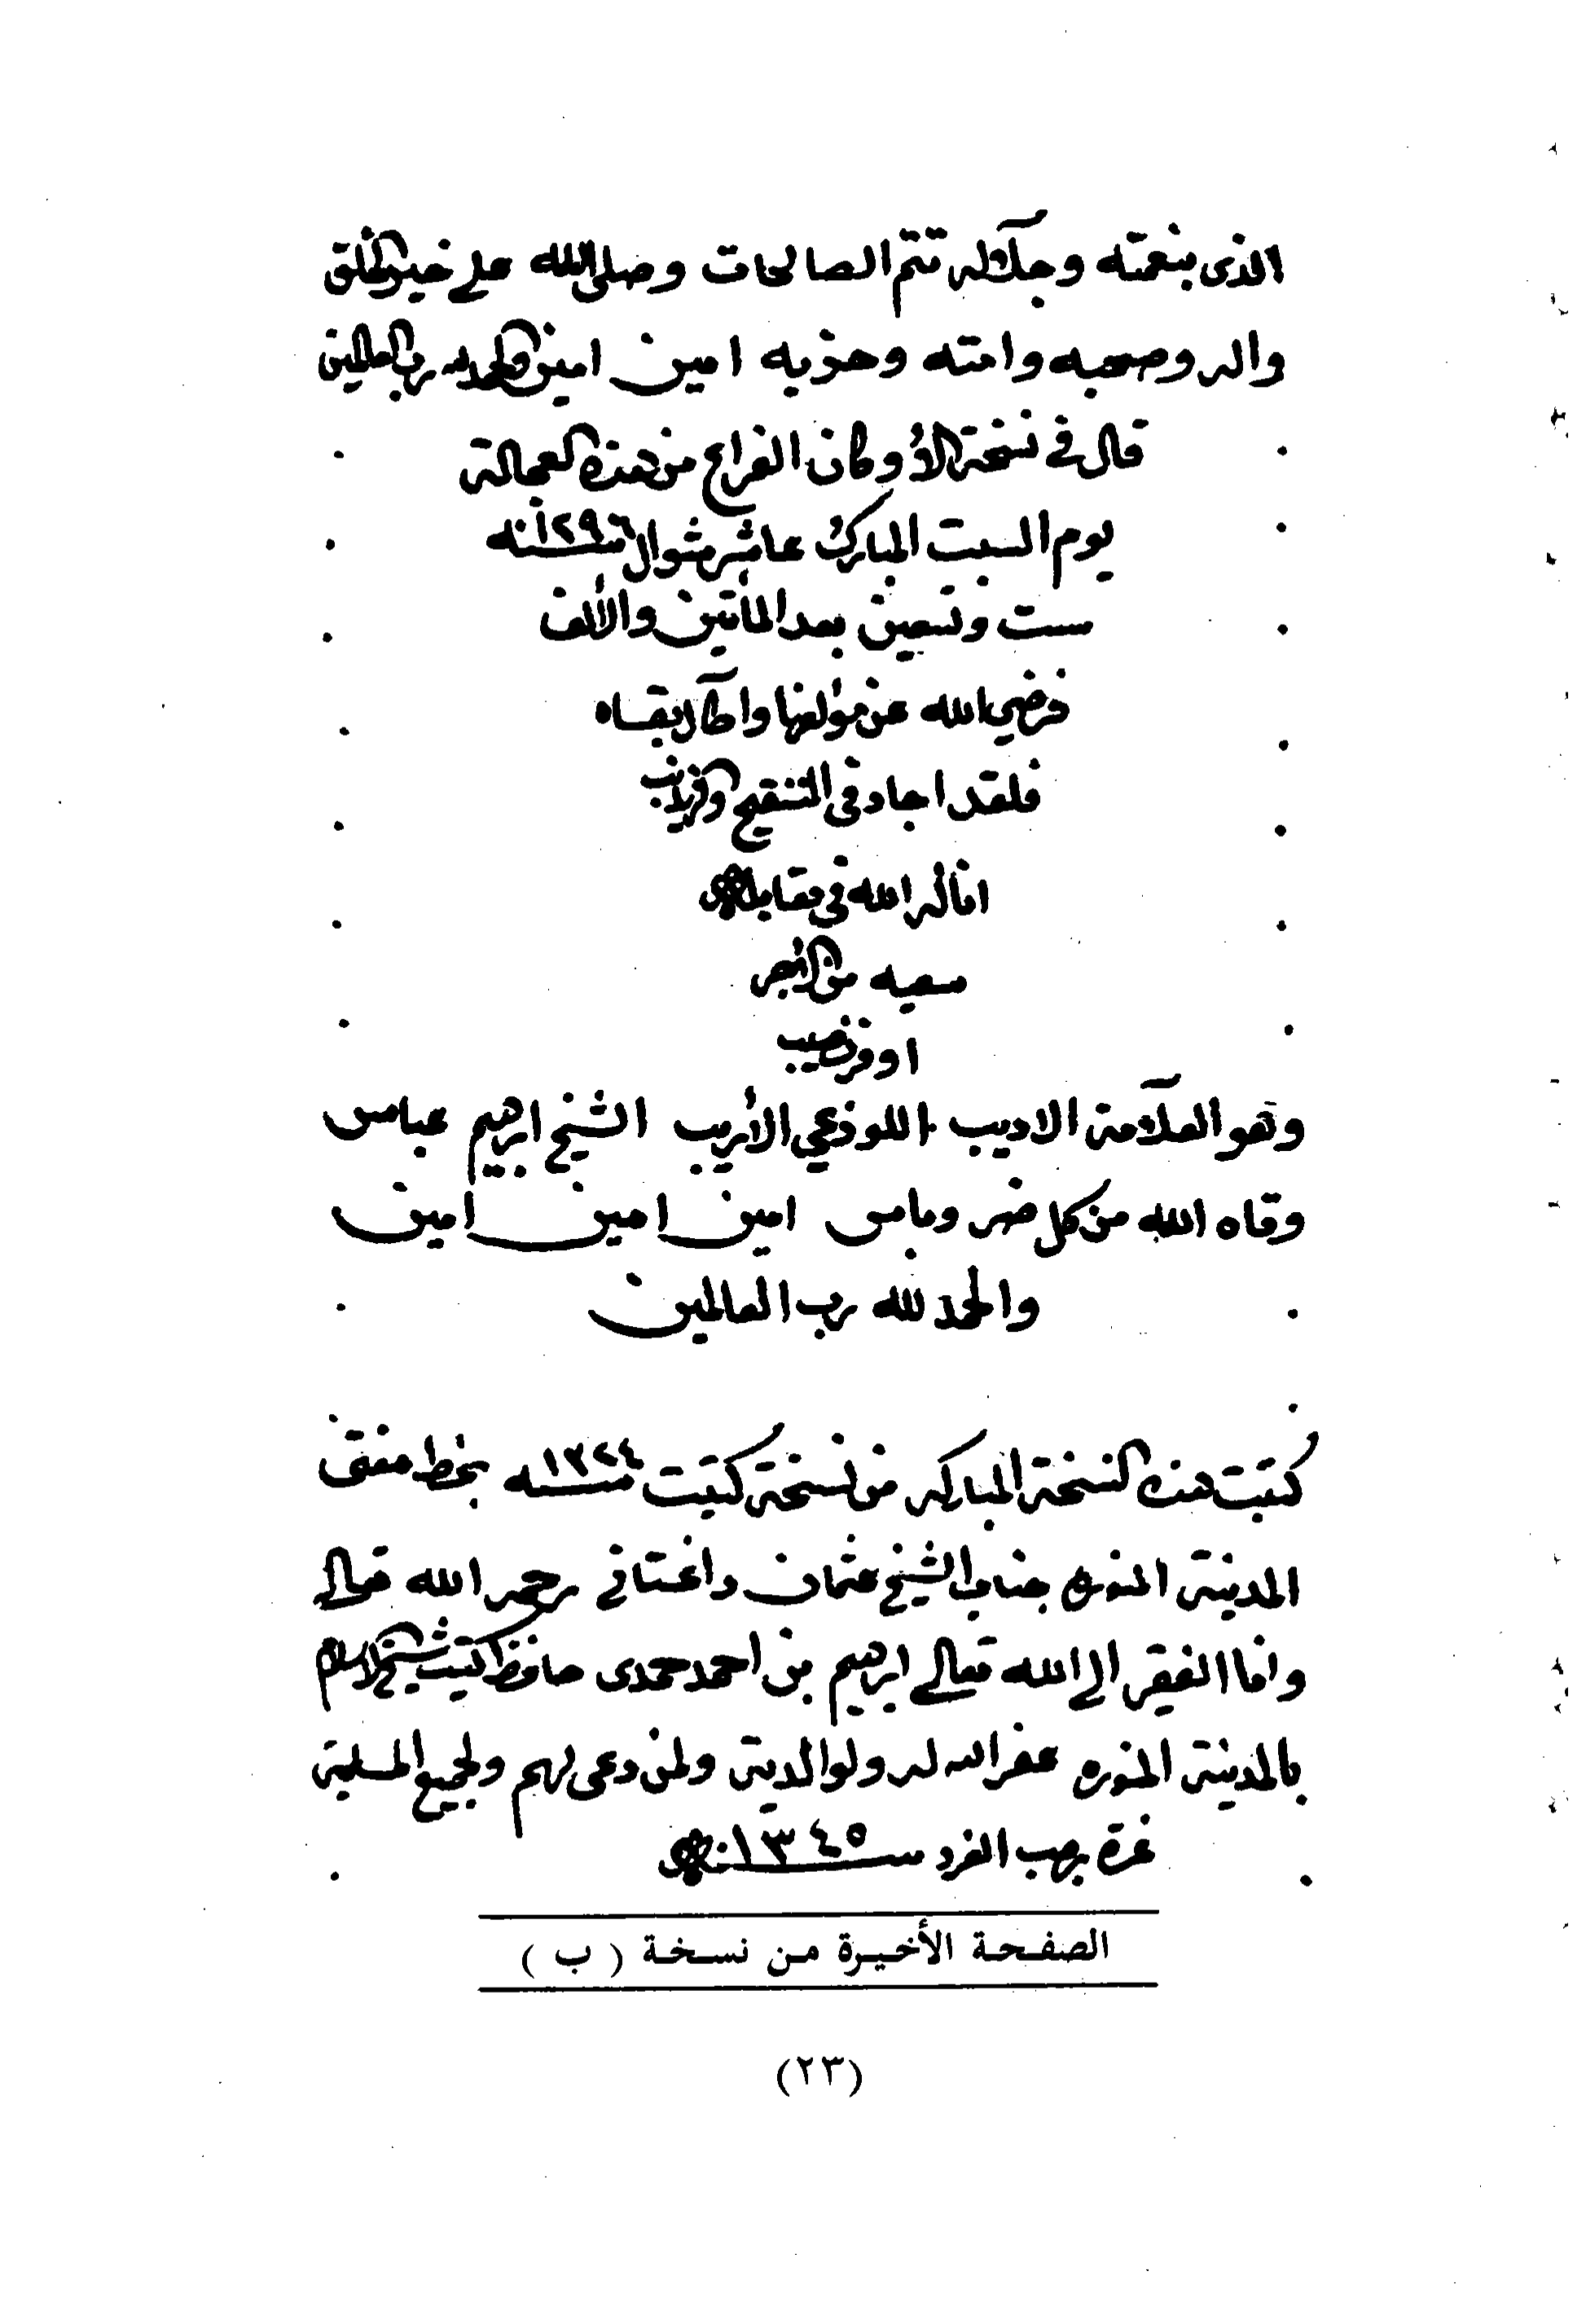 الذى بنعمته وجلاله تتم الصالحات وصلى الله على خير الخلق
واله وصحبه وامته وحزبه امين امين والحمد لله رب العالمين
قال فى نسخة الأم وكان الفراغ من هذه العجالة
يوم السبت المبارك عاشر شوال سنة ١٢٩٦
ست وتسعين بعد المأتين والألف
فرضي الله عن مؤلفها واطال بقاه
فلقد اجاد فى التنقيح والتهذيب
اناله الله في مقابلة
سعيه من الخير
اوفر نصيب
وهو العلامة الاديب اللوذعي الأريب الشيخ ابرهيم عباس
وقاه الله من كل ضر وباس امين امين امين
والحمد لله رب العالمين
كتبت هذه النسخة المباركه من نسخة كتبت سنه ١٣٢٤ بخط مفتى
المدينة المنوره جناب الشيخ عثمان داغستانى رحمه الله تعالى
وانا الفقير الى الله تعالى ابرهيم بن احمد حمدى حافظ كتب شيخ الاسلام
بالمدينة المنوره غفر الله له ولوالديه ولمن دعى لهم ولجميع المسلمين
غرة رجب الفرد سنة ١٣٤٥
الصفحة الأخيرة من نسخة ( ب )
(٢٣)